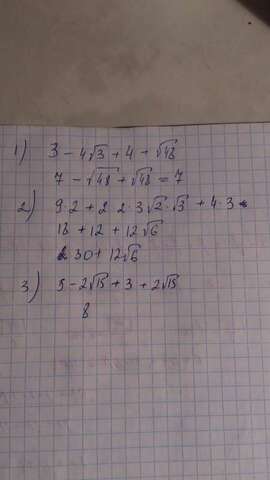 1) 3 - 4√3 + 4 + √48
7 - √48 + √48 = 7
2) 9·2 + 2·2·3√2·√3 + 4·3
18 + 12 + 12√6
30 + 12√6
3) 5 - 2√15 + 3 + 2√15
8